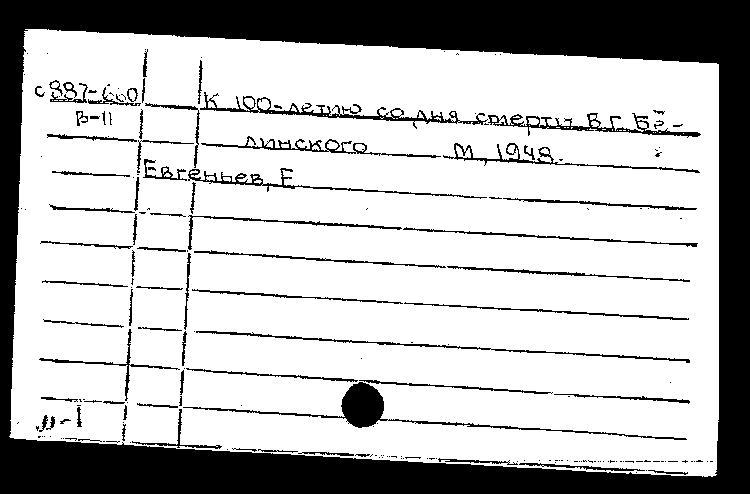 с 887-660
В-11
К 100-летию со дня смерти В.Г. Бе-
линского М., 1948.
Евгеньев, Е